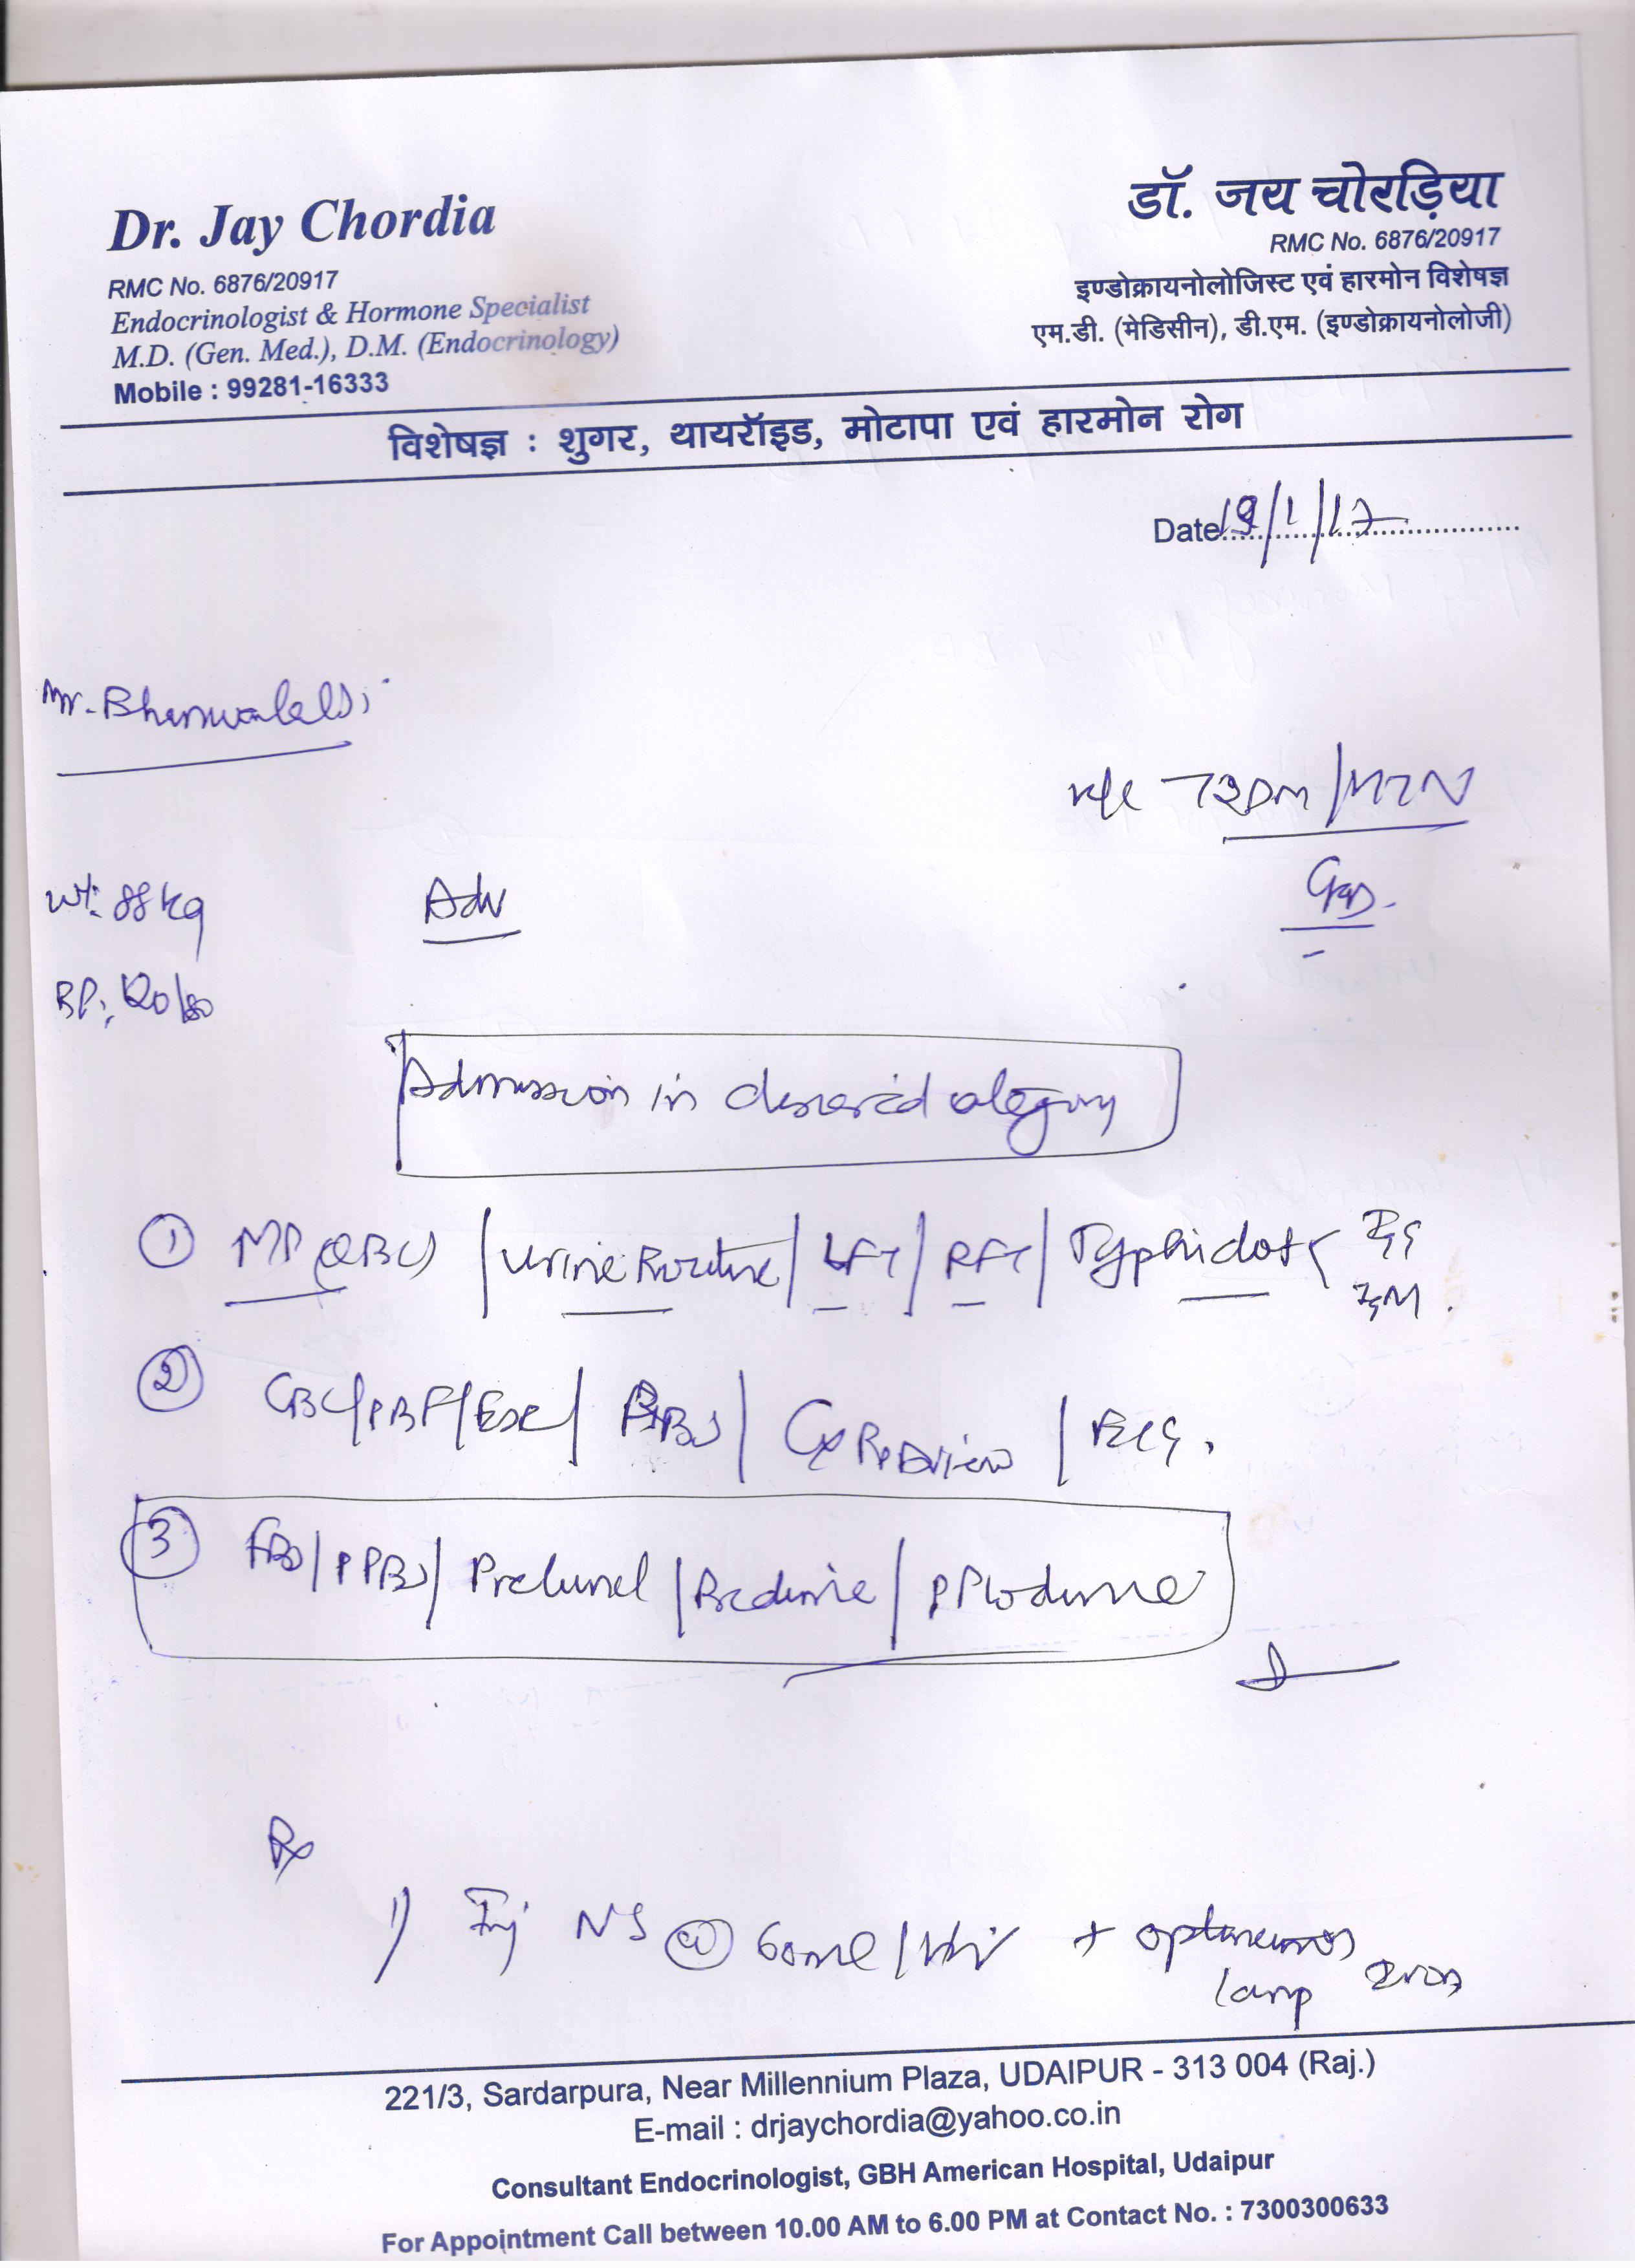 Dr. Jay Chordia
RMC No. 6876/20917
Endocrinologist & Hormone Specialist
M.D. (Gen. Med.), D.M. (Endocrinology)
Mobile : 99281-16333
डॉ. जय चोरड़िया
RMC No. 6876/20917
इण्डोक्रायनोलोजिस्ट एवं हारमोन विशेषज्ञ
एम.डी. (मेडिसीन), डी.एम. (इण्डोक्रायनोलोजी)
विशेषज्ञ : शुगर, थायरॉइड, मोटापा एवं हारमोन रोग
Date 19/1/17
Mr. Bhanwalal
T2DM/HTN
Wt: 88 kg
Adv
BP: 120/80
Admission in desired category
① MP (QBC) / Urine Routine / LFT / RFT / Typhidot < IgG
IgM.
② CBC/PBF/ESR / RBS / CxR PA View / ECG.
③ FBS/PPBS/ Prelunch / Predinner / PPtodinner
Rx
1) Inj NS @ 60 ml/hr + Optineuron
1 amp
221/3, Sardarpura, Near Millennium Plaza, UDAIPUR - 313 004 (Raj.)
E-mail : drjaychordia@yahoo.co.in
Consultant Endocrinologist, GBH American Hospital, Udaipur
For Appointment Call between 10.00 AM to 6.00 PM at Contact No. : 7300300633